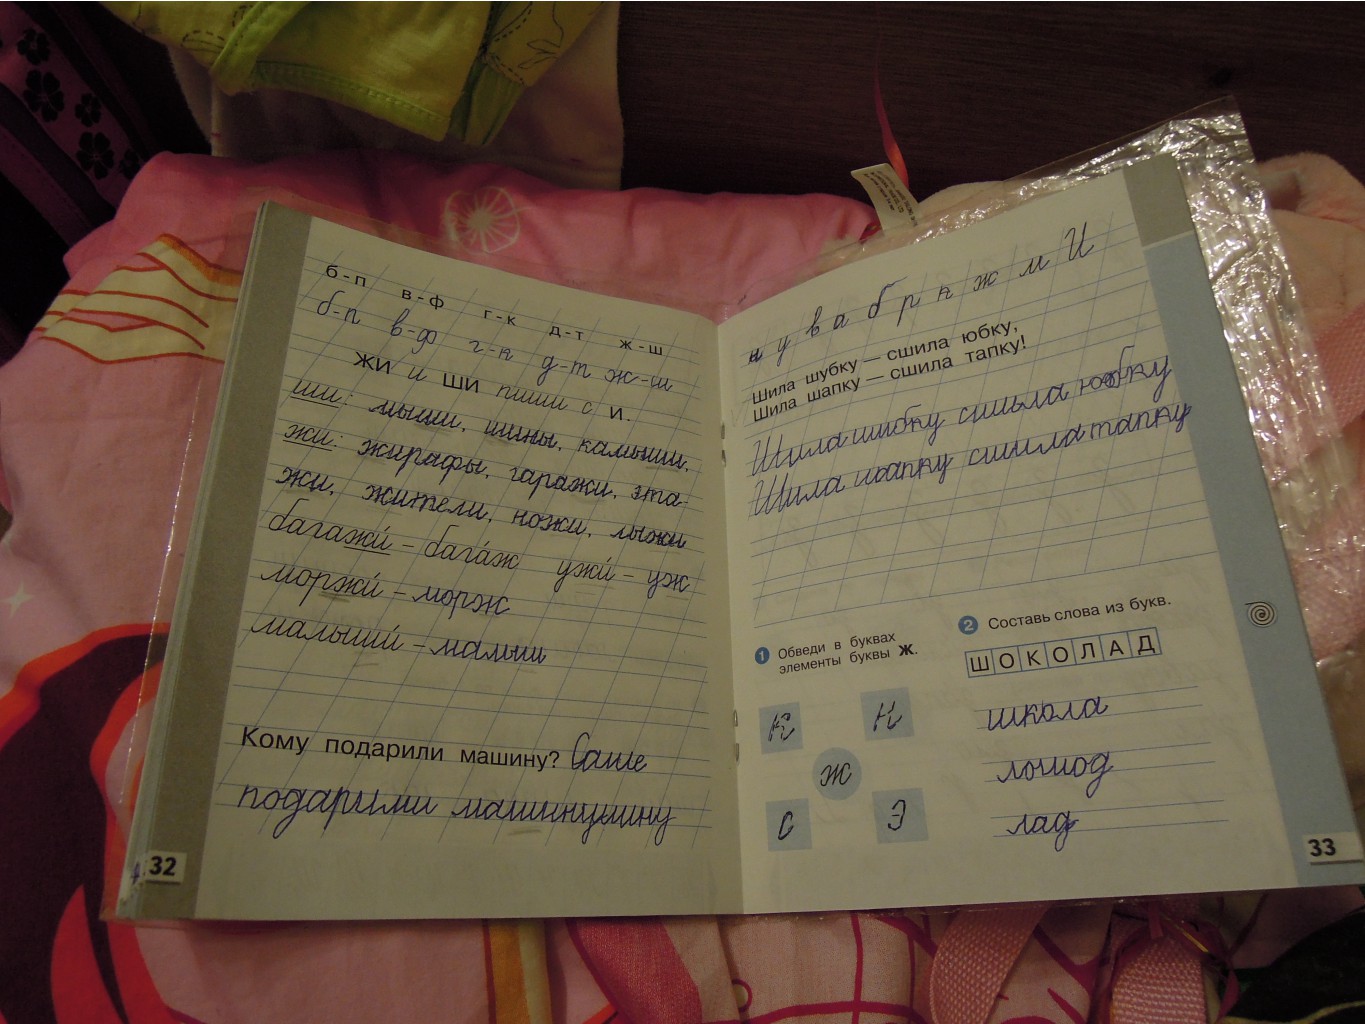 б-п в-ф г-к д-т ж-ш
б-п в-ф г-к д-т ж-ш
жи и ши пиши с и.
ши: мыши, шины, камыши,
жи: жирафы, гаражи, эта-
жи, жители, ножи, лыжи
багажи́ – бага́ж ужи́ – уж
моржи́ – морж
малыши́ – малыш
Кому подарили машину? Саше
подарили машинушину
32
и у в а б р к ж м И
Шила шубку — сшила юбку,
Шила шапку — сшила тапку!
Шила шибку сшила юбку
Шила шапку сшила тапку
1 Обведи в буквах
элементы буквы Ж.
К Н
Ж
С Э
2 Составь слова из букв.
ШОКОЛАД
школа
лошод
лад
33